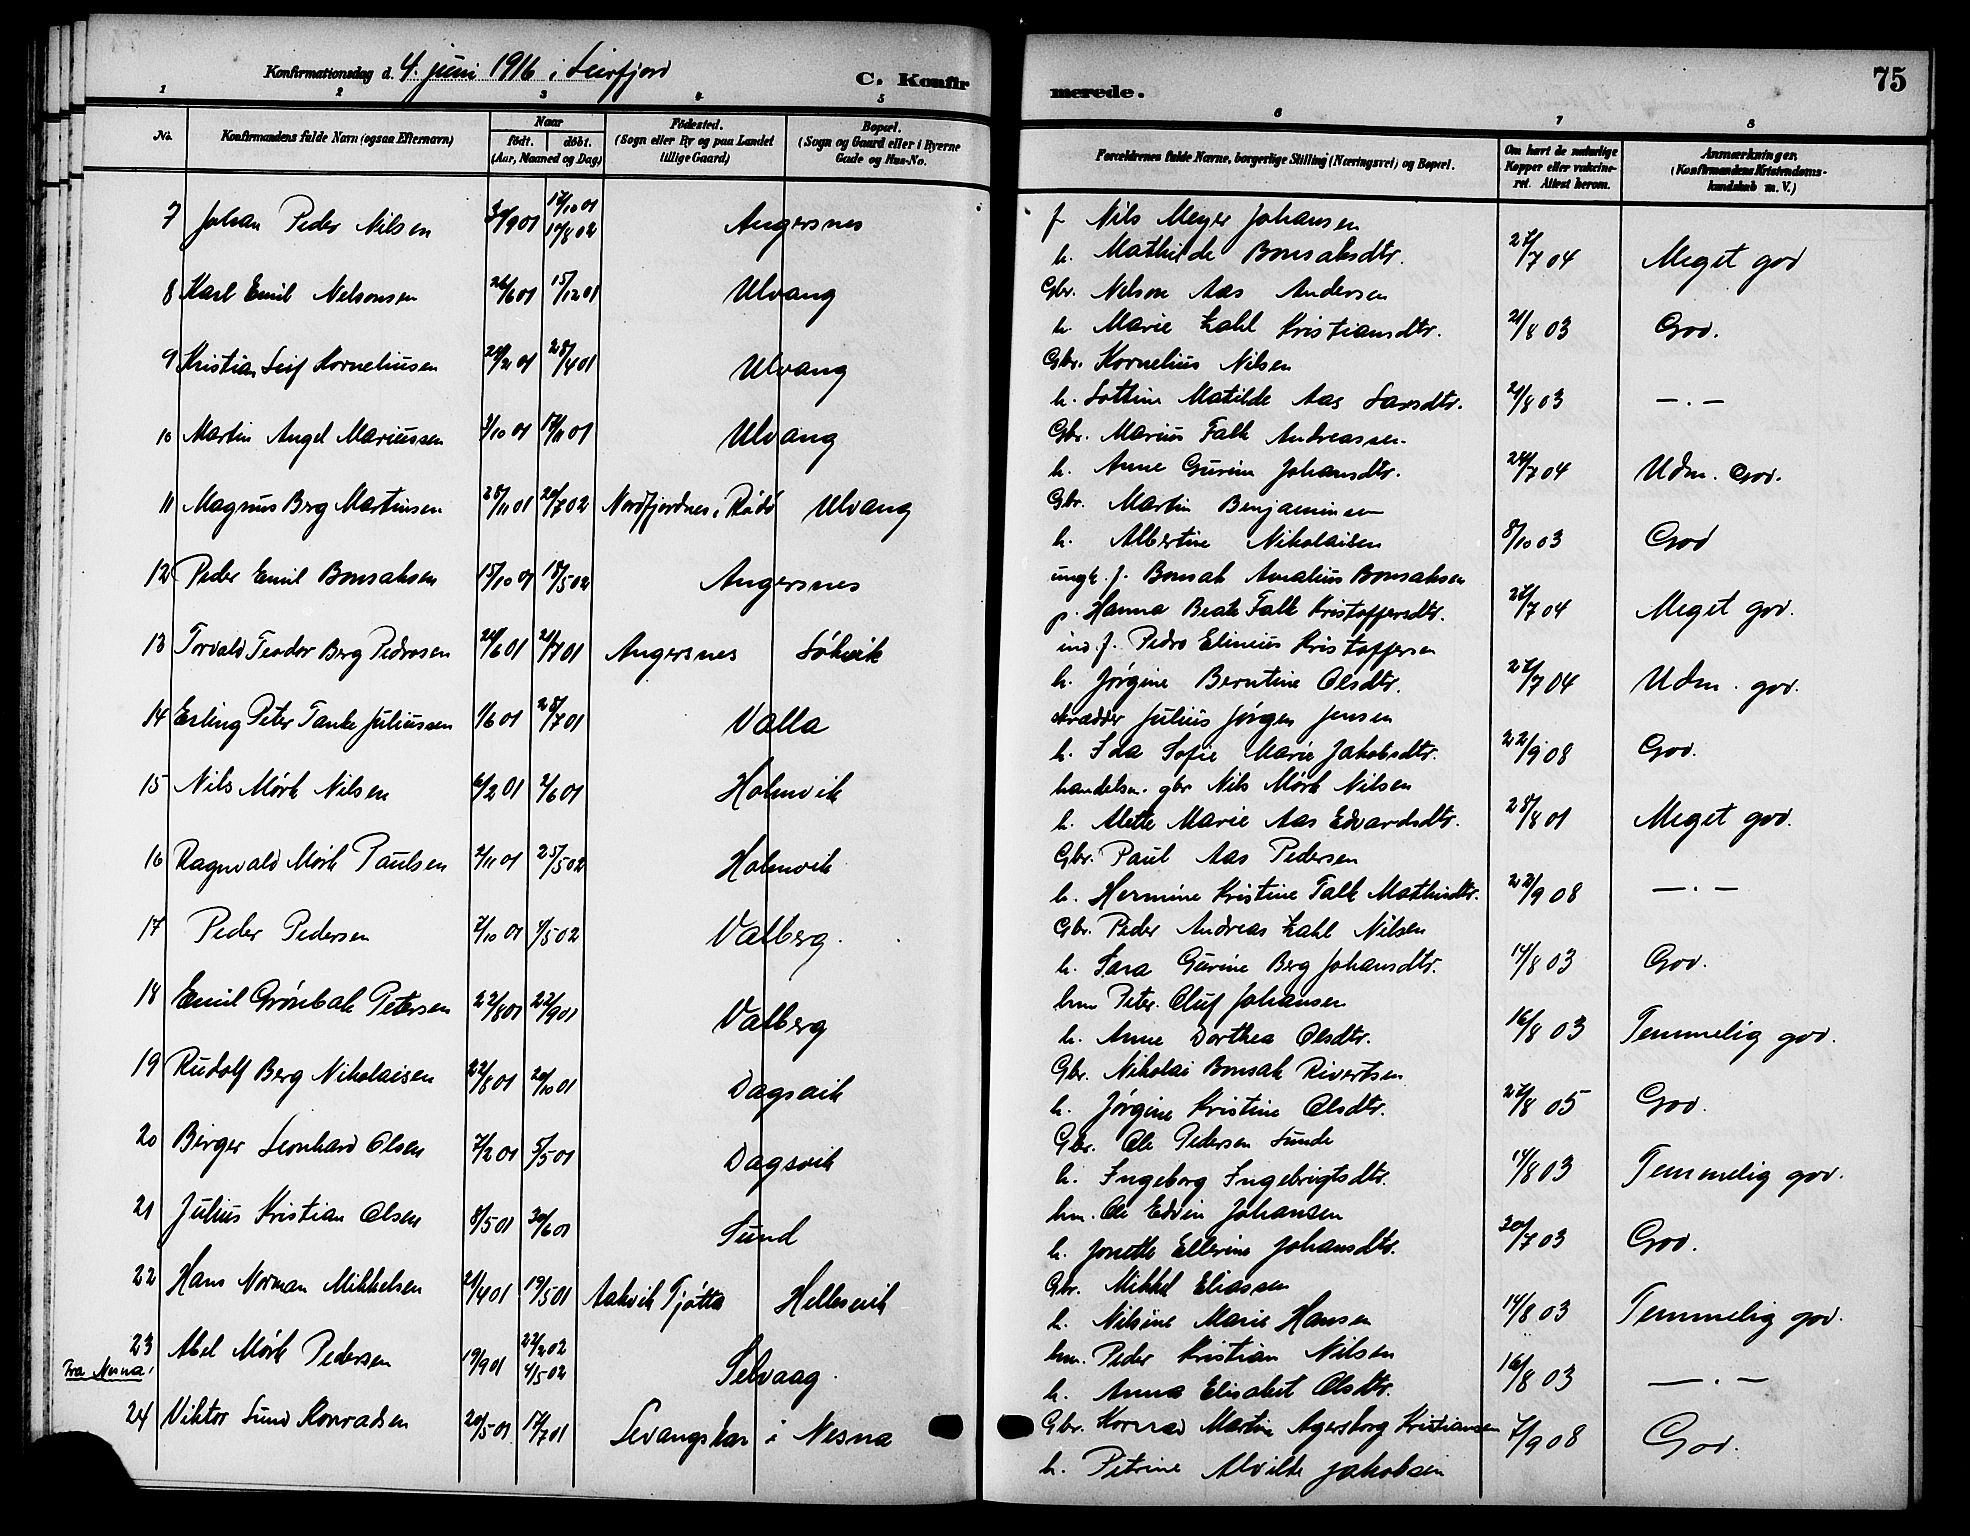 Konfirmationsdag d. 4. juni 1916 i Leirfjord
C. Konfirmerede.
75
1 2 3 4 5 6 7 8
No.
Konfirmandens fulde Navn (ogsaa Efternavn)
Naar
født. døbt.
(Aar, Maaned og Dag)
Fødested.
(Sogn eller By og paa Landet
tillige Gaard)
Bopæl.
(Sogn og Gaard eller i Byerne
Gade og Hus-No.
Forældrenes fulde Navne, borgerlige Stilling (Næringsvei) og Bopæl.
Om havt de naturlige
Kopper eller vakcine-
ret. Attest herom.
Anmærkninger.
(Konfirmandens Kristendoms-
kundskab m. V.)
7 Johan Peder Nilsen /9 01 17/10 01 17/8 02 Angersnes
f Nils Meyer Johansen
h. Mathilde Bonsaksdtr. 27/7 04 Meget god
8 Karl Emil Nelsonsen 26/6 01 15/12 01 Ulvang
Gbr. Nelson Aas Andersen
h. Marie Zahl Kristiansdtr. 21/8 03 God.
9 Kristian Leif Korneliussen 28/2 01 28/4 01 Ulvang
Gbr. Kornelius Nilsen
h. Lottine Matilde Aas Larsdtr. 21/8 03 — . —
10 Martin Angel Mariussen 3/10 01 17/11 01 Ulvang
Gbr. Marius Falk Andreassen
h. Anne Gurine Johansdtr. 24/7 04 Udm. God.
11 Magnus Berg Martinsen 28/11 01 20/7 02 Nordfjordnes i Rødø Ulvang
Gbr. Martin Benjaminsen
h. Albertine Nikolaisen 8/10 03 God
12 Peder Emil Bonsaksen 15/10 01 18/5 02 Angersnes
ungk. f. Bonsak Amalius Bonsaksen
p. Hanna Beate Falk Kristoffersdtr. 27/7 04 Meget god.
13 Torvald Teodor Berg Pedrosen 24/6 01 21/7 01 Angersnes Søhvik
ind. f. Pedro Elinius Kristoffersen
h. Jørgine Berntine Olsdtr. 27/7 04 Udm. god.
14 Erling Peter Tanke Juliussen 1/6 01 28/7 01 Valla
skrædder Julius Jørgen Jensen
h. Ida Sofie Marie Jakobsdtr. 22/9 08 God.
15 Nils Mørk Nilsen 6/2 01 2/6 01 Holmvik
handelsm. gbr Nils Mørk Nilsen
h. Alette Marie Aas Edvardsdtr. 28/8 01 Meget god.
16 Ragnvald Mørk Paulsen 2/11 01 25/5 02 Holmvik
Gbr. Paul Aas Pedersen
h. Hermine Kristine Falk Mathisdtr. 22/9 08 — . —
17 Peder Pedersen 7/10 01 4/5 02 Valberg.
Gbr. Peder Andreas Zahl Nilsen
h. Sara Gurine Berg Johansdtr. 14/8 03 God.
18 Emil Grønbak Petersen 22/8 01 22/9 01 Valberg
hm Peter Oluf Johansen
h. Anne Dorthea Olsdtr. 16/8 03 Temmelig god.
19 Rudolf Berg Nikolaisen 22/8 01 20/10 01 Dagsvik
Gbr. Nikolai Bonsak Rivertsen
h. Jørgine Kristine Olsdtr. 27/8 05 God.
20 Birger Leonhard Olsen 7/2 01 5/5 01 Dagsvik
Gbr. Ole Pedersen Sunde
h. Ingeborg Ingebrigtsdtr. 14/8 03 Temmelig god.
21 Julius Kristian Olsen 8/5 01 30/6 01 Sund
hm. Ole Edvin Johansen
h. Jonette Ellerine Johansdtr. 20/7 03 God.
22 Hans Norman Mikkelsen 21/4 01 19/5 01 Aakvik Tjøtta Hellesvik
Gbr. Mikkel Eliassen
h. Nilsine Marie Hansen 14/8 03 Temmelig god.
23 Abel Mørk Pedersen 19/9 01 22/2 02 4/5 02 Selvaag.
hm. Peder Kristian Nilsen
h. Anna Elisabet Olsdtr. 16/8 03 — . —
Fra Nesna!
24 Viktor Sund Konradsen 20/5 01 17/7 01 Levangskar i Nesna
Gbr. Konrad Martin Agersborg Kristiansen
h. Petrine Alvilde Jakobsen 7/9 08 God.